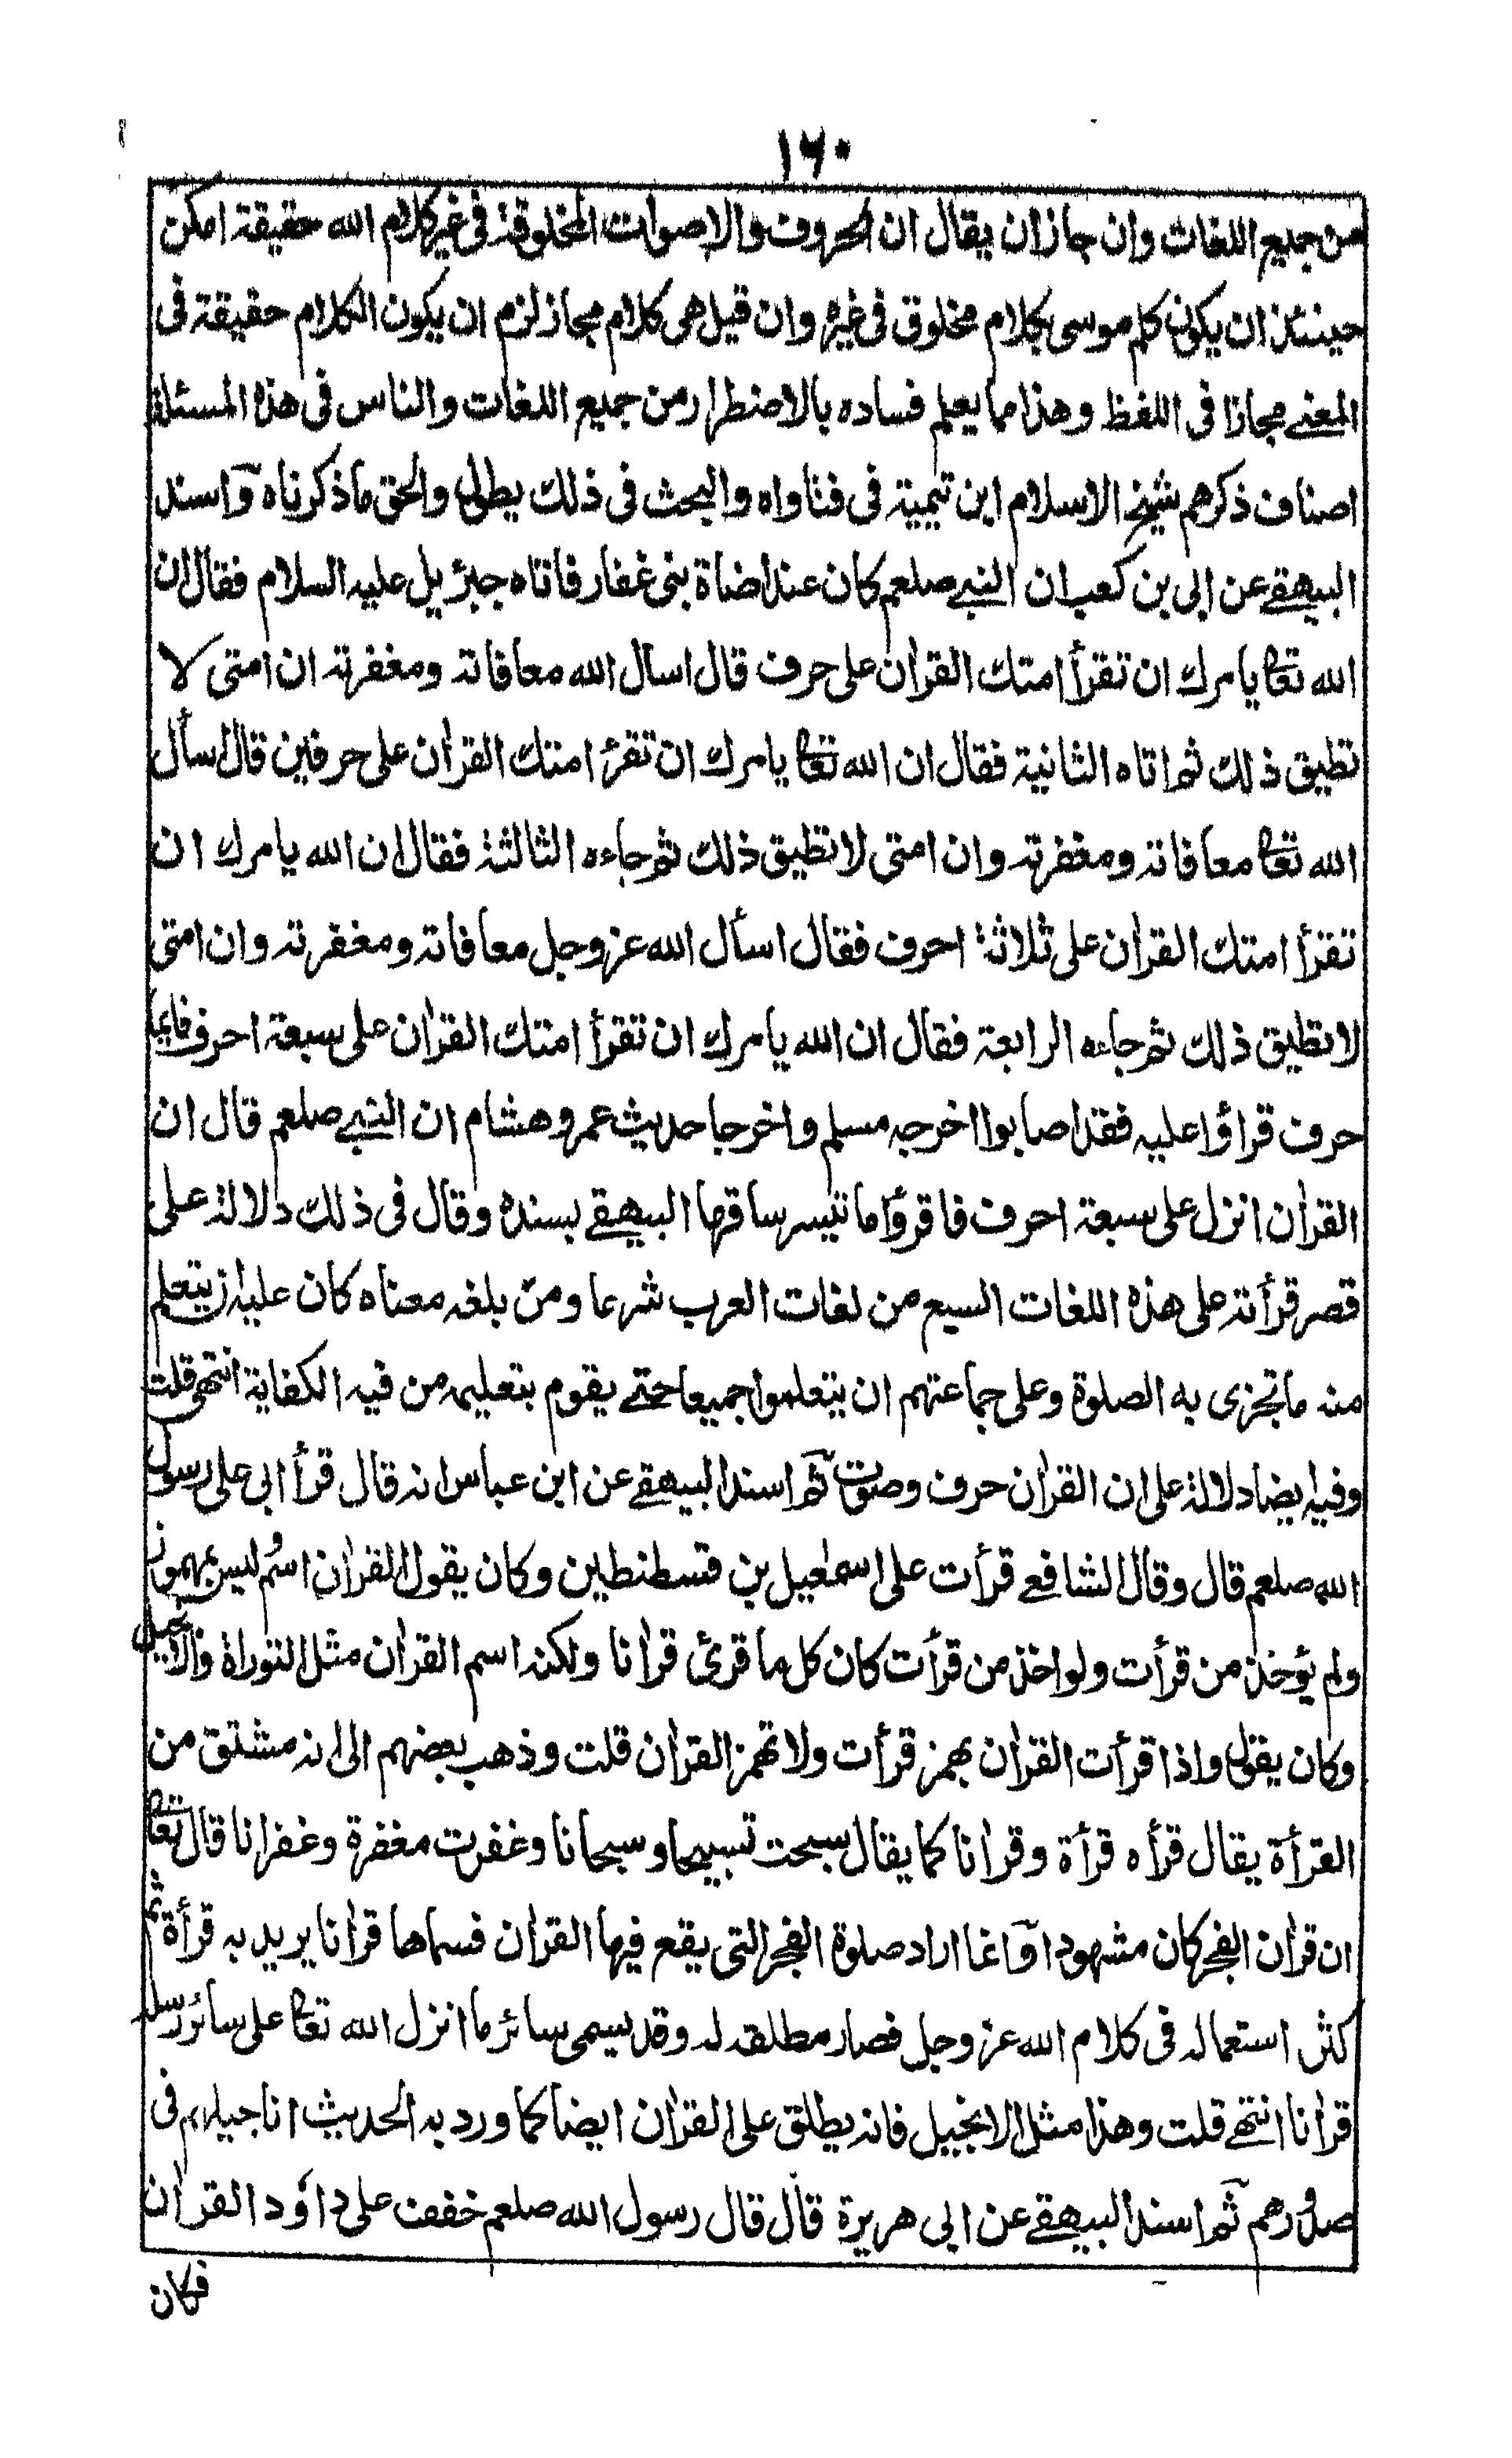 ١٦٠
من جميع اللغات وان جازان يقال ان الحروف والاصوات المخلوقة فى غير كلام الله حقيقة امكن
حينئذ ان يكون كلم موسى بكلام مخلوق فى غيره وان قيل هى كلام مجاز لزم ان يكون الكلام حقيقة فى
المعنے مجازا فى اللفظ وهذا مما يعلم فساده بالاضطرار من جميع اللغات والناس فى هذه المسئلة
اصناف ذكرهم شيخ الاسلام ابن تيمية فى فتاواه والبحث فى ذلك يطول والحق ما ذكرناه وآسند
البيهقے عن ابى بن كعب ان النبے صلعم كان عند اضاة بنى غفار فاتاه جبرئيل عليه السلام فقال ان
الله تعا يامرك ان تقرأ امتك القران على حرف قال اسأل الله معافاته ومغفرته ان امتى لا
تطيق ذلك ثم اتاه الثانية فقال ان الله تعا يامرك ان تقرئ امتك القران على حرفين قال اسأل
الله تعا معافاته ومغفرته وان امتى لا تطيق ذلك ثم جاءه الثالثة فقال ان الله يامرك ان
تقرأ امتك القران على ثلاثة احرف فقال اسأل الله عز وجل معافاته ومغفرته وان امتى
لا تطيق ذلك ثم جاءه الرابعة فقال ان الله يامرك ان تقرأ امتك القران على سبعة احرف فايما
حرف قراؤا عليه فقد اصابوا اخرجه مسلم واخرجا حديث عمر وهشام ان النبے صلعم قال ان
القران انزل على سبعة احرف فاقرؤا ما تيسر ساقها البيهقے بسنده وقال فى ذلك دلالة على
قصر قرأته على هذه اللغات السبع من لغات العرب شرعا ومن بلغه معناه كان عليه ان يتعلم
منه ما تجزى به الصلوة وعلى جماعتهم ان يتعلموا جميعا حتے يقوم بتعليمه من فيه الكفاية انتهى قلت
وفيه ايضا دلالة على ان القران حرف وصوت ثم اسند البيهقے عن ابن عباس انه قال قرأ ابى على رسول
الله صلعم قال وقال الشافعے قرأت على اسمٰعيل بن قسطنطين وكان يقول القران اسم ليس بمهموز
ولم يؤخذ من قرأت ولو اخذ من قرأت كان كل ما قرئ قرانا ولكنه اسم القران مثل التوراة والانجيل
وكان يقول واذا قرأت القران بهمز قرأت ولا تهمز القران قلت وذهب بعضهم الى انه مشتق من
القرأة يقال قرأه قرأة وقرانا كما يقال سبحت تسبيحا وسبحانا وغفرت مغفرة وغفرانا قال تعا
ان قران الفجر كان مشهودا وآنما اراد صلوة الفجر التى يقع فيها القران فسماها قرانا يريد به قرأة ثم
كثر استعماله فى كلام الله عز وجل فصار مطلقه له وقد يسمى سائر ما انزل الله تعا على سائر رسله
قرانا انتهے قلت وهذا مثل الانجيل فانه يطلق على القران ايضا كما ورد به الحديث اناجيلهم فى
صدورهم ثم اسند البيهقے عن ابى هريرة قال قال رسول الله صلعم خففت على داؤد القران
فكان